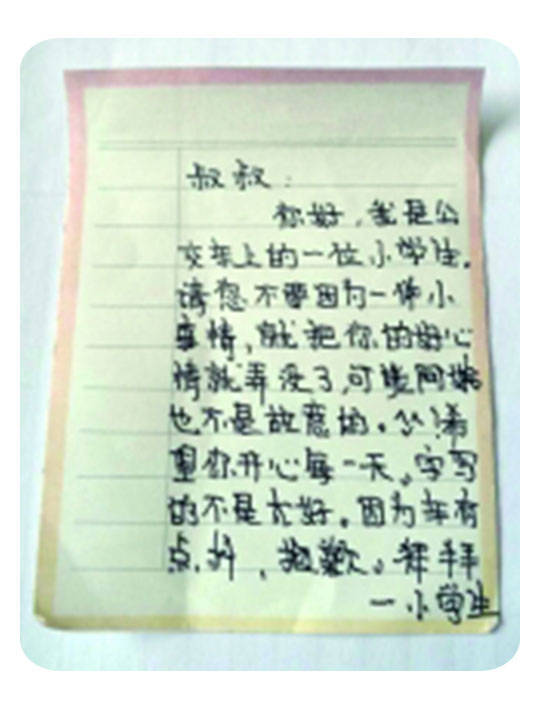 叔叔：
你好，我是公
交车上的一位小学生。
请您不要因为一件小
事情，就把你的好心
情就弄没了，可能阿姨
也不是故意的。^^!希
望你开心每一天。字写
的不是太好。因为车有
点抖，抱歉。拜拜
一小学生